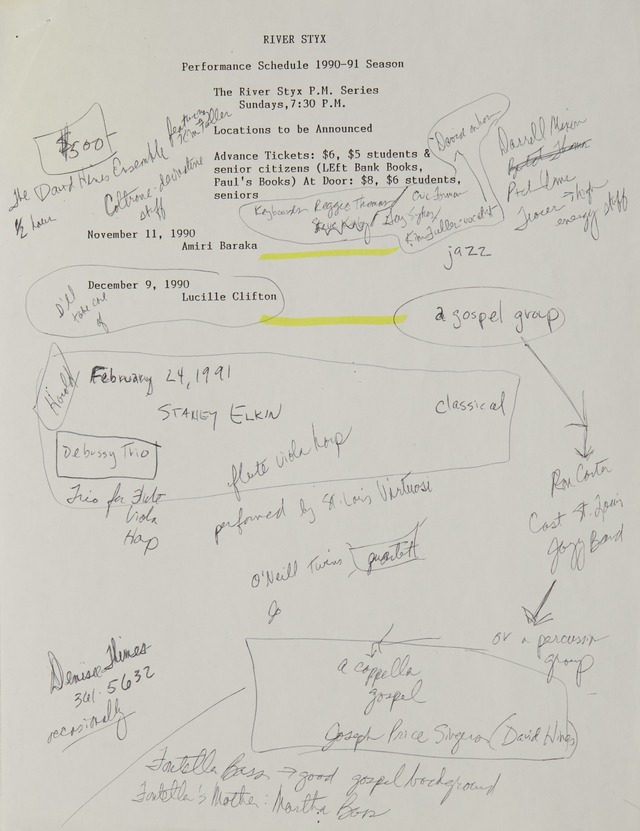 RIVER STYX
Performance Schedule 1990-91 Season
The River Styx P.M. Series
Sundays,7:30 P.M.
Locations to be Announced
Advance Tickets: $6, $5 students &
senior citizens (LEft Bank Books,
Paul's Books) At Door: $8, $6 students,
seniors
$500
The David Hines Ensemble
featuring
Kim Fuller
1/2 hour
Coltrone-derivative
stuff
Keyboardn Reggie Thomas
Kim Fuller-vocalist
Darrell
energy stuff
jazz
November 11, 1990
Amiri Baraka
December 9, 1990
Lucille Clifton
I'll
take care
of
a gospel group
Harold
February 24, 1991
STANLEY ELKIN
classical
Debussy Trio
flute viola harp
Trio for Flute
Viola
Harp
performed by St. Louis Virtuosi
Ron Carter
East St. Louis
Jazz Band
O'Neill Twins quartet
or a percussion
group
a cappella
gospel
Joseph Price Singers (David Hines)
Denise Himes
361-5632
occasionally
Fontella Bass → good gospel background
Fontella's Mother: Martha Bass